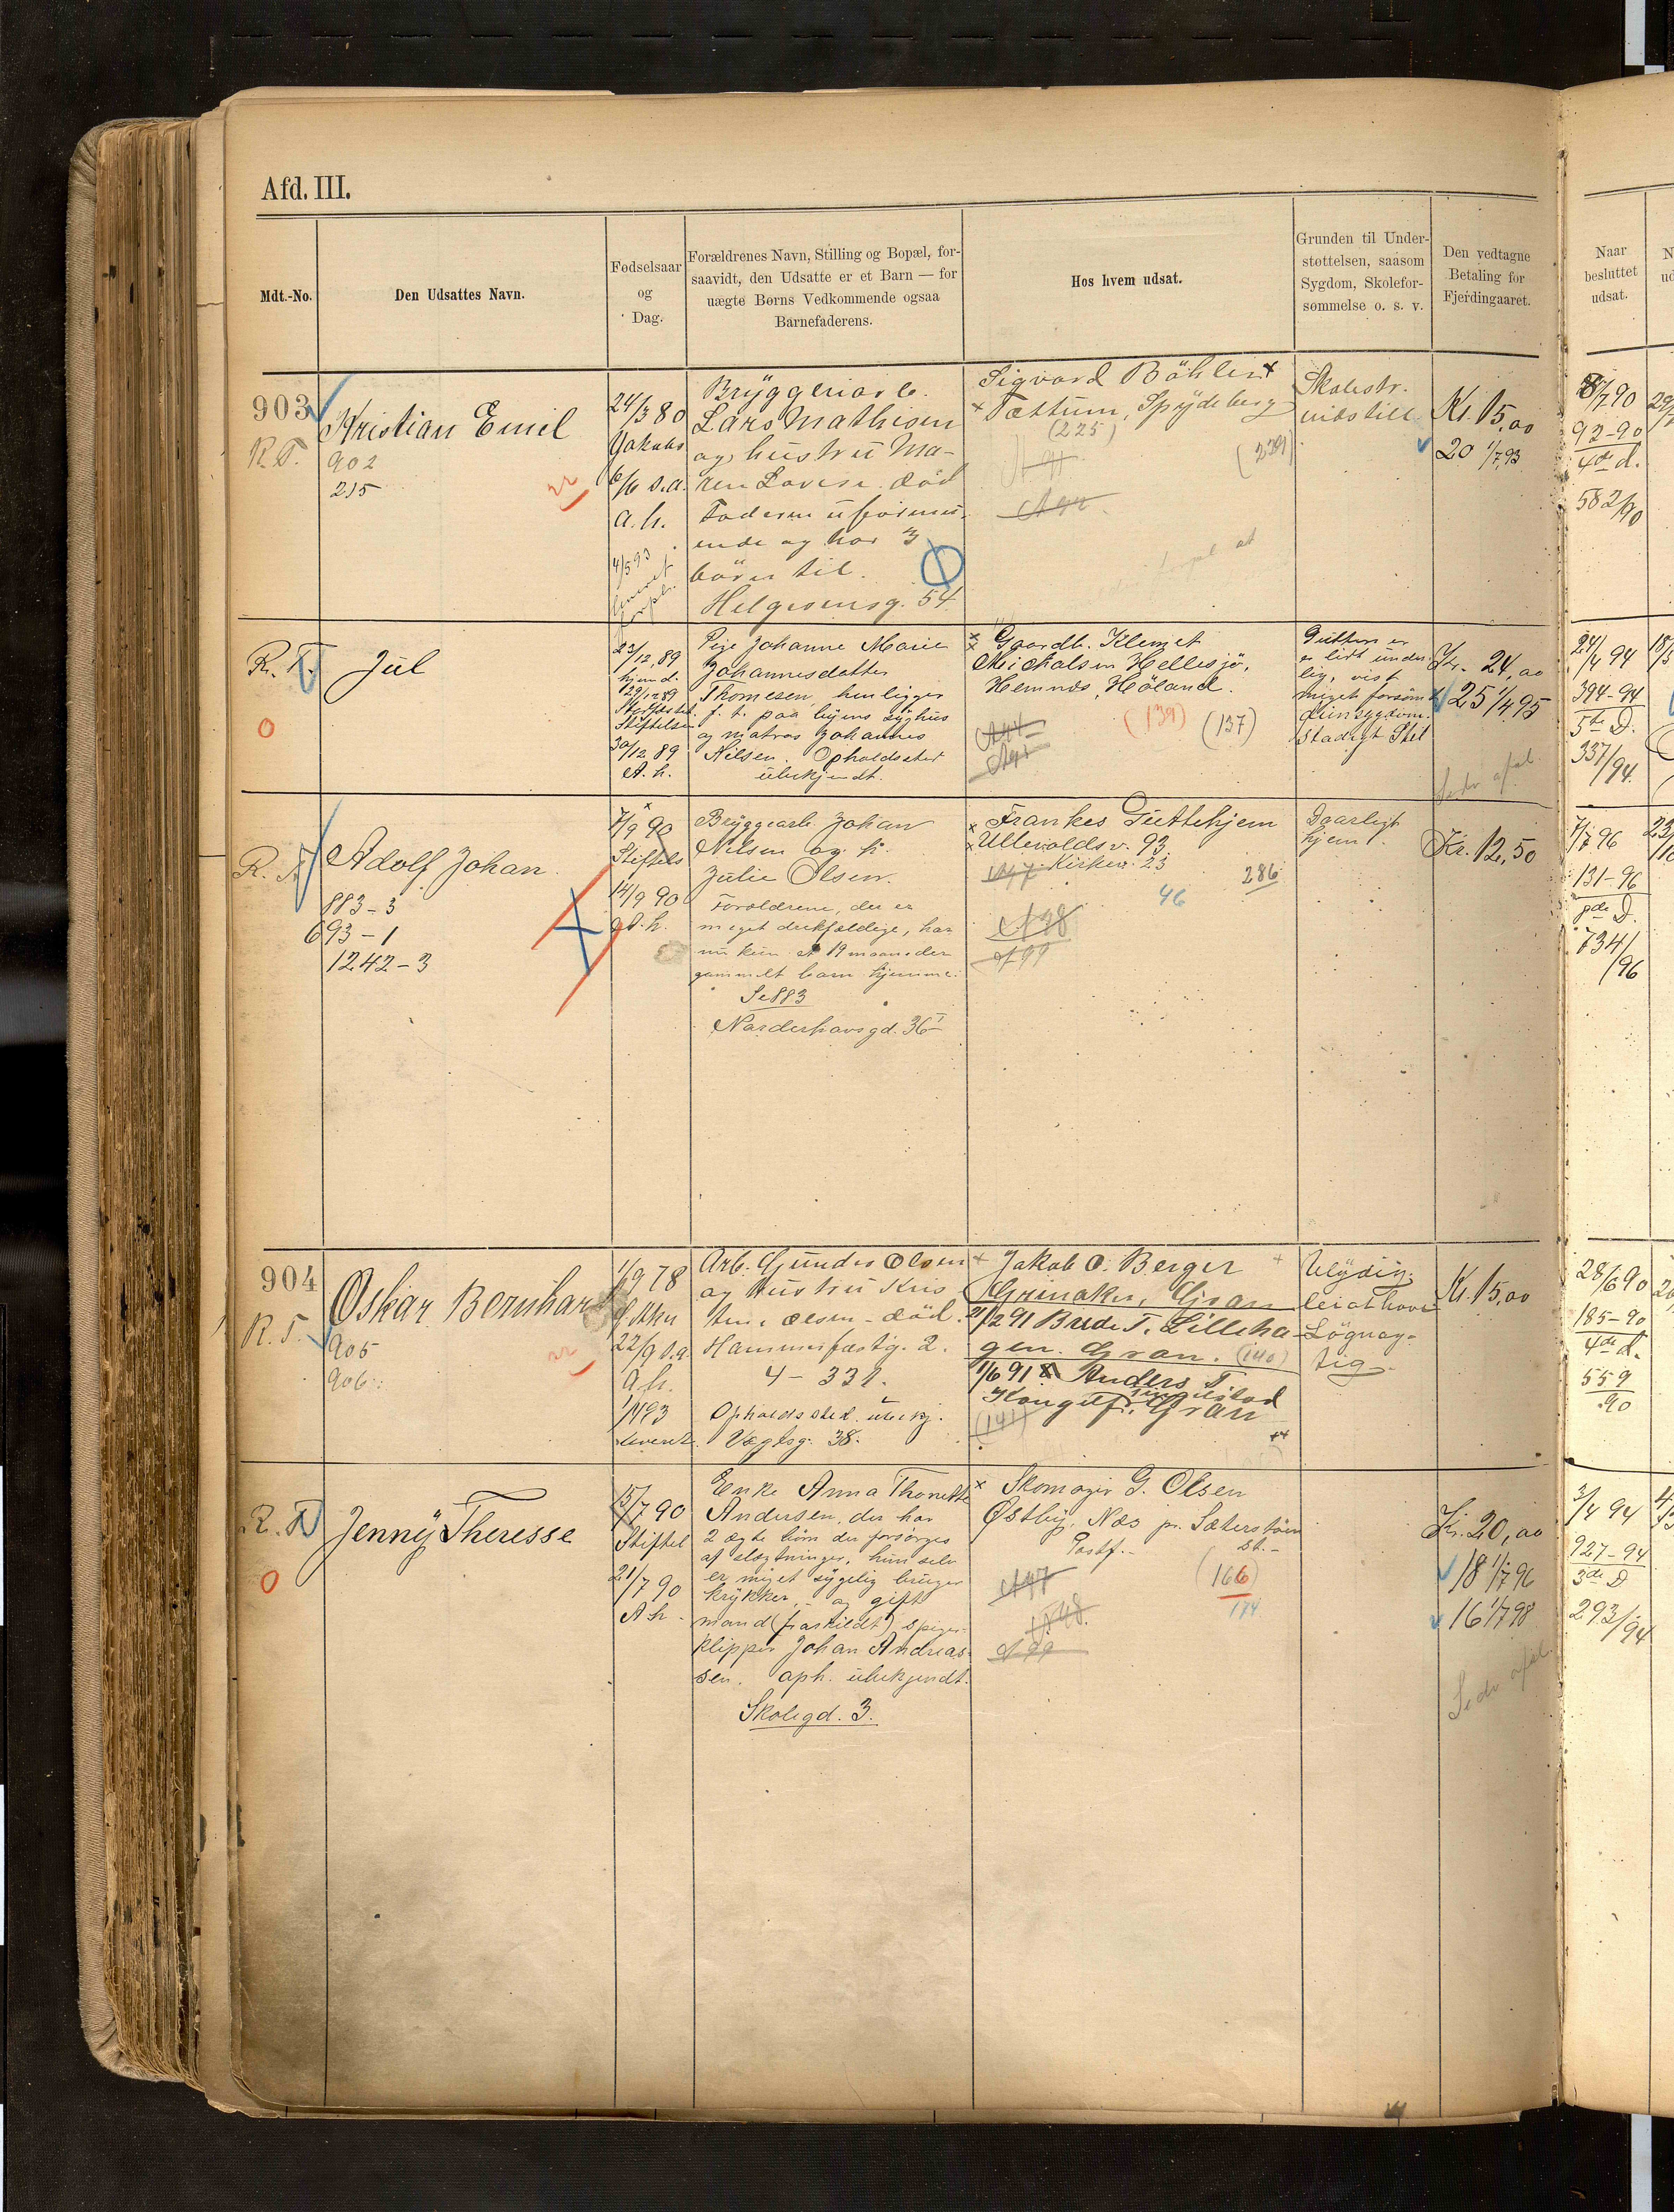 Afd. III.
Mdt.-No.
Den Udsattes Navn.
Fødselsaar
og
Dag.
Forældrenes Navn, Stilling og Bopæl, for-
saavidt, den Udsatte er et Barn — for
uægte Børns Vedkommende ogsaa
Barnefaderens.
Hos hvem udsat.
Grunden til Under-
støttelsen, saasom
Sygdom, Skolefor-
sømmelse o. s. v.
Den vedtagne
Betaling for
Fjerdingaaret.
Naar
besluttet
udsat.
903
R. T.
Kristian Emil
902
215
24/3 80
Jakobs
6/6 s.a.
a. h.
4/5 93
Bryggeriarb.
Lars Mathisen
og hustru Ma-
ren Lovise. død
Faderen uformu-
ende og har 3
börn til.
Helgesensg. 54
Sigvard Böhler
Tættum, Spydeberg
(225)
(229)
Skolestr.
Kr. 15,00
20 1/7 93
8/7 90
92-90
4de d.
582/90
R. T.
0
Jul
23/12 89
hjemd.
29/12 89
Stiftelse
30/12 89
A. h.
Pige Johanne Marie
Johannesdatter
Thomesen henligger
f. t. paa byens syghus
og matros Johannes
Nilsen. Opholdssted
ubekjendt.
Gaardb. Klemet
Michalsen Hellesjö,
Hemnæs, Höland.
(139)
(137)
Gutten er
er lidt under
lig, vist
meget forsömt
Stadigt Stel
Kr. 24,00
25 1/4 95
24/4 94
394-94
5te D.
337/94.
R. T.
Adolf Johan
883-3
693-1
1242-3
7/9 90
Stiftels
14/9 90
A. h.
Bryggearb. Johan
Nilsen og h.
Julie Olsen.
Foreldrene, der er
meget drikfældige, har
nu kun et 19 maaneder
gammelt barn hjemme.
Se 883
Narderhavsgd. 36 I
Frankes Guttehjem
Ullevoldsv. 93.
Kirkev. 23
286
46
A 98
A 99
Daarligt
hjem.
Kr. 12,50
7/7 96
131-96
734/96
904
R. T.
Oskar Bernhard
905
906
1/9 78
22/9 s.a.
a. h.
Arb. Gunder Olsen
og hustru Kris
tine Olsen - död.
Hammerfestg. 2.
4 - 331.
Opholdssted ubekj.
Vægtsg. 38.
Jakob O. Berger
Grinaker, Gran
21/2 91 Brede T. Lilleha-
gen. Gran. (140)
1/6 91 Anders T.
Gran
(141)
Ulydig,
Lögnag-
tig
Kr. 15,00
28/6 90
185-90
4de d.
559
90
R. T.
0
Jenny Theresse
15/7 90
Stiftel
21/7 90
A h.
Enke Anna Thonette
Andersen, der har
2 ægte börn der forsörges
af slægtninger, hun selv
er meget sygelig bruger
krykker, - og gift
mand (fraskildt) spiger-
klipper Johan Andreas-
sen. oph. ubekjendt.
Skolegd. 3.
Skomager G. Olsen
Østby, Næs pr. Sæterstöen
Postf. - st. -
A 97
A 98.
A 99
(166)
174
Kr. 20,00
18 1/7 96
16 1/7 98
3/4 94
927-94
3de D
293/94